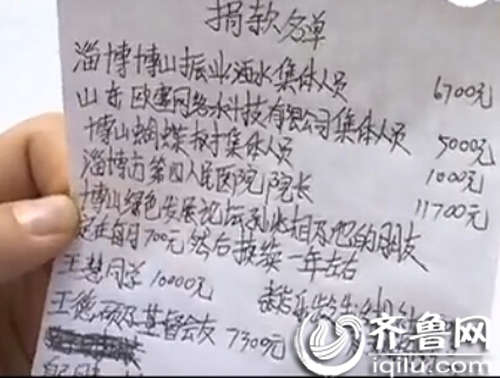 捐款名单
淄博博山振业酒水集体人员 6700元
山东欧赛网络水科技有限公司集体人员
博山蝴蝶 集体人员 5000元
淄博市第四人民医院院长 1000元
博山绿色发展论坛 他的朋友 11700元
每月700元然后持续一年左右
王慧同学10000元
王德硕及基督会友7300元
齐鲁网
iqilu.com